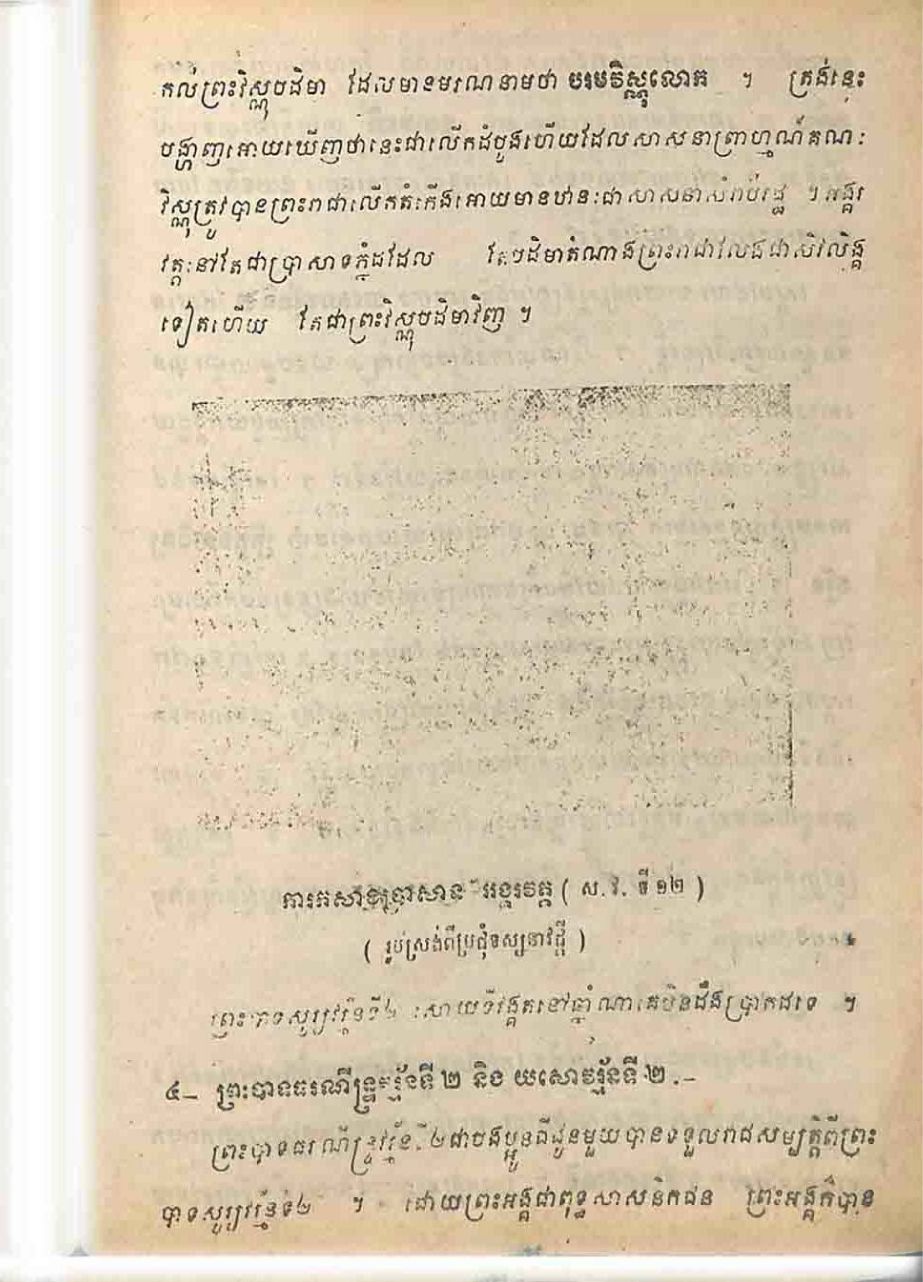 កល់ព្រះវិស្ណុបដិមា ដែលមានមរណនាមថា បរមវិស្ណុលោក ។ ត្រង់នេះ
បង្ហាញអោយឃើញថានេះជាលើកដំបូងហើយដែលសាសនាព្រាហ្មណ៍គណៈ
វិស្ណុត្រូវបានព្រះរាជាលើកតំកើងអោយមានឋានៈជាសាសនាសំរាប់រដ្ឋ ។ អង្គរ
វត្តៈនៅតែជាប្រាសាទភ្នំដដែល តែបដិមាតំណាងព្រះរាជាលែងជាសិវលិង្គ
ទៀតហើយ តែជាព្រះវិស្ណុបដិមាវិញ ។
ការកសាងប្រាសាទ អង្គរវត្ត ( ស.វ. ទី ១២ )
( រូបស្រង់ពីប្រជុំទស្សនាវដ្ដី )
ព្រះបាទសូរ្យវរ្ម័នទី២ សោយទីវង្គតនៅឆ្នាំណាគេមិនដឹងប្រាកដទេ ។
៤_ ព្រះបាទធរណីន្ទ្រវរ្ម័នទី ២ និង យសោវរ្ម័នទី ២ .-
ព្រះបាទធរណីន្ទ្រវរ្ម័នទី២ជាបងប្អូនជីដូនមួយបានទទួលរាជសម្បត្តិពីព្រះ
បាទសូរ្យវរ្ម័នទី២ ។ ដោយព្រះអង្គជាពុទ្ធសាសនិកជន ព្រះអង្គក៏បាន